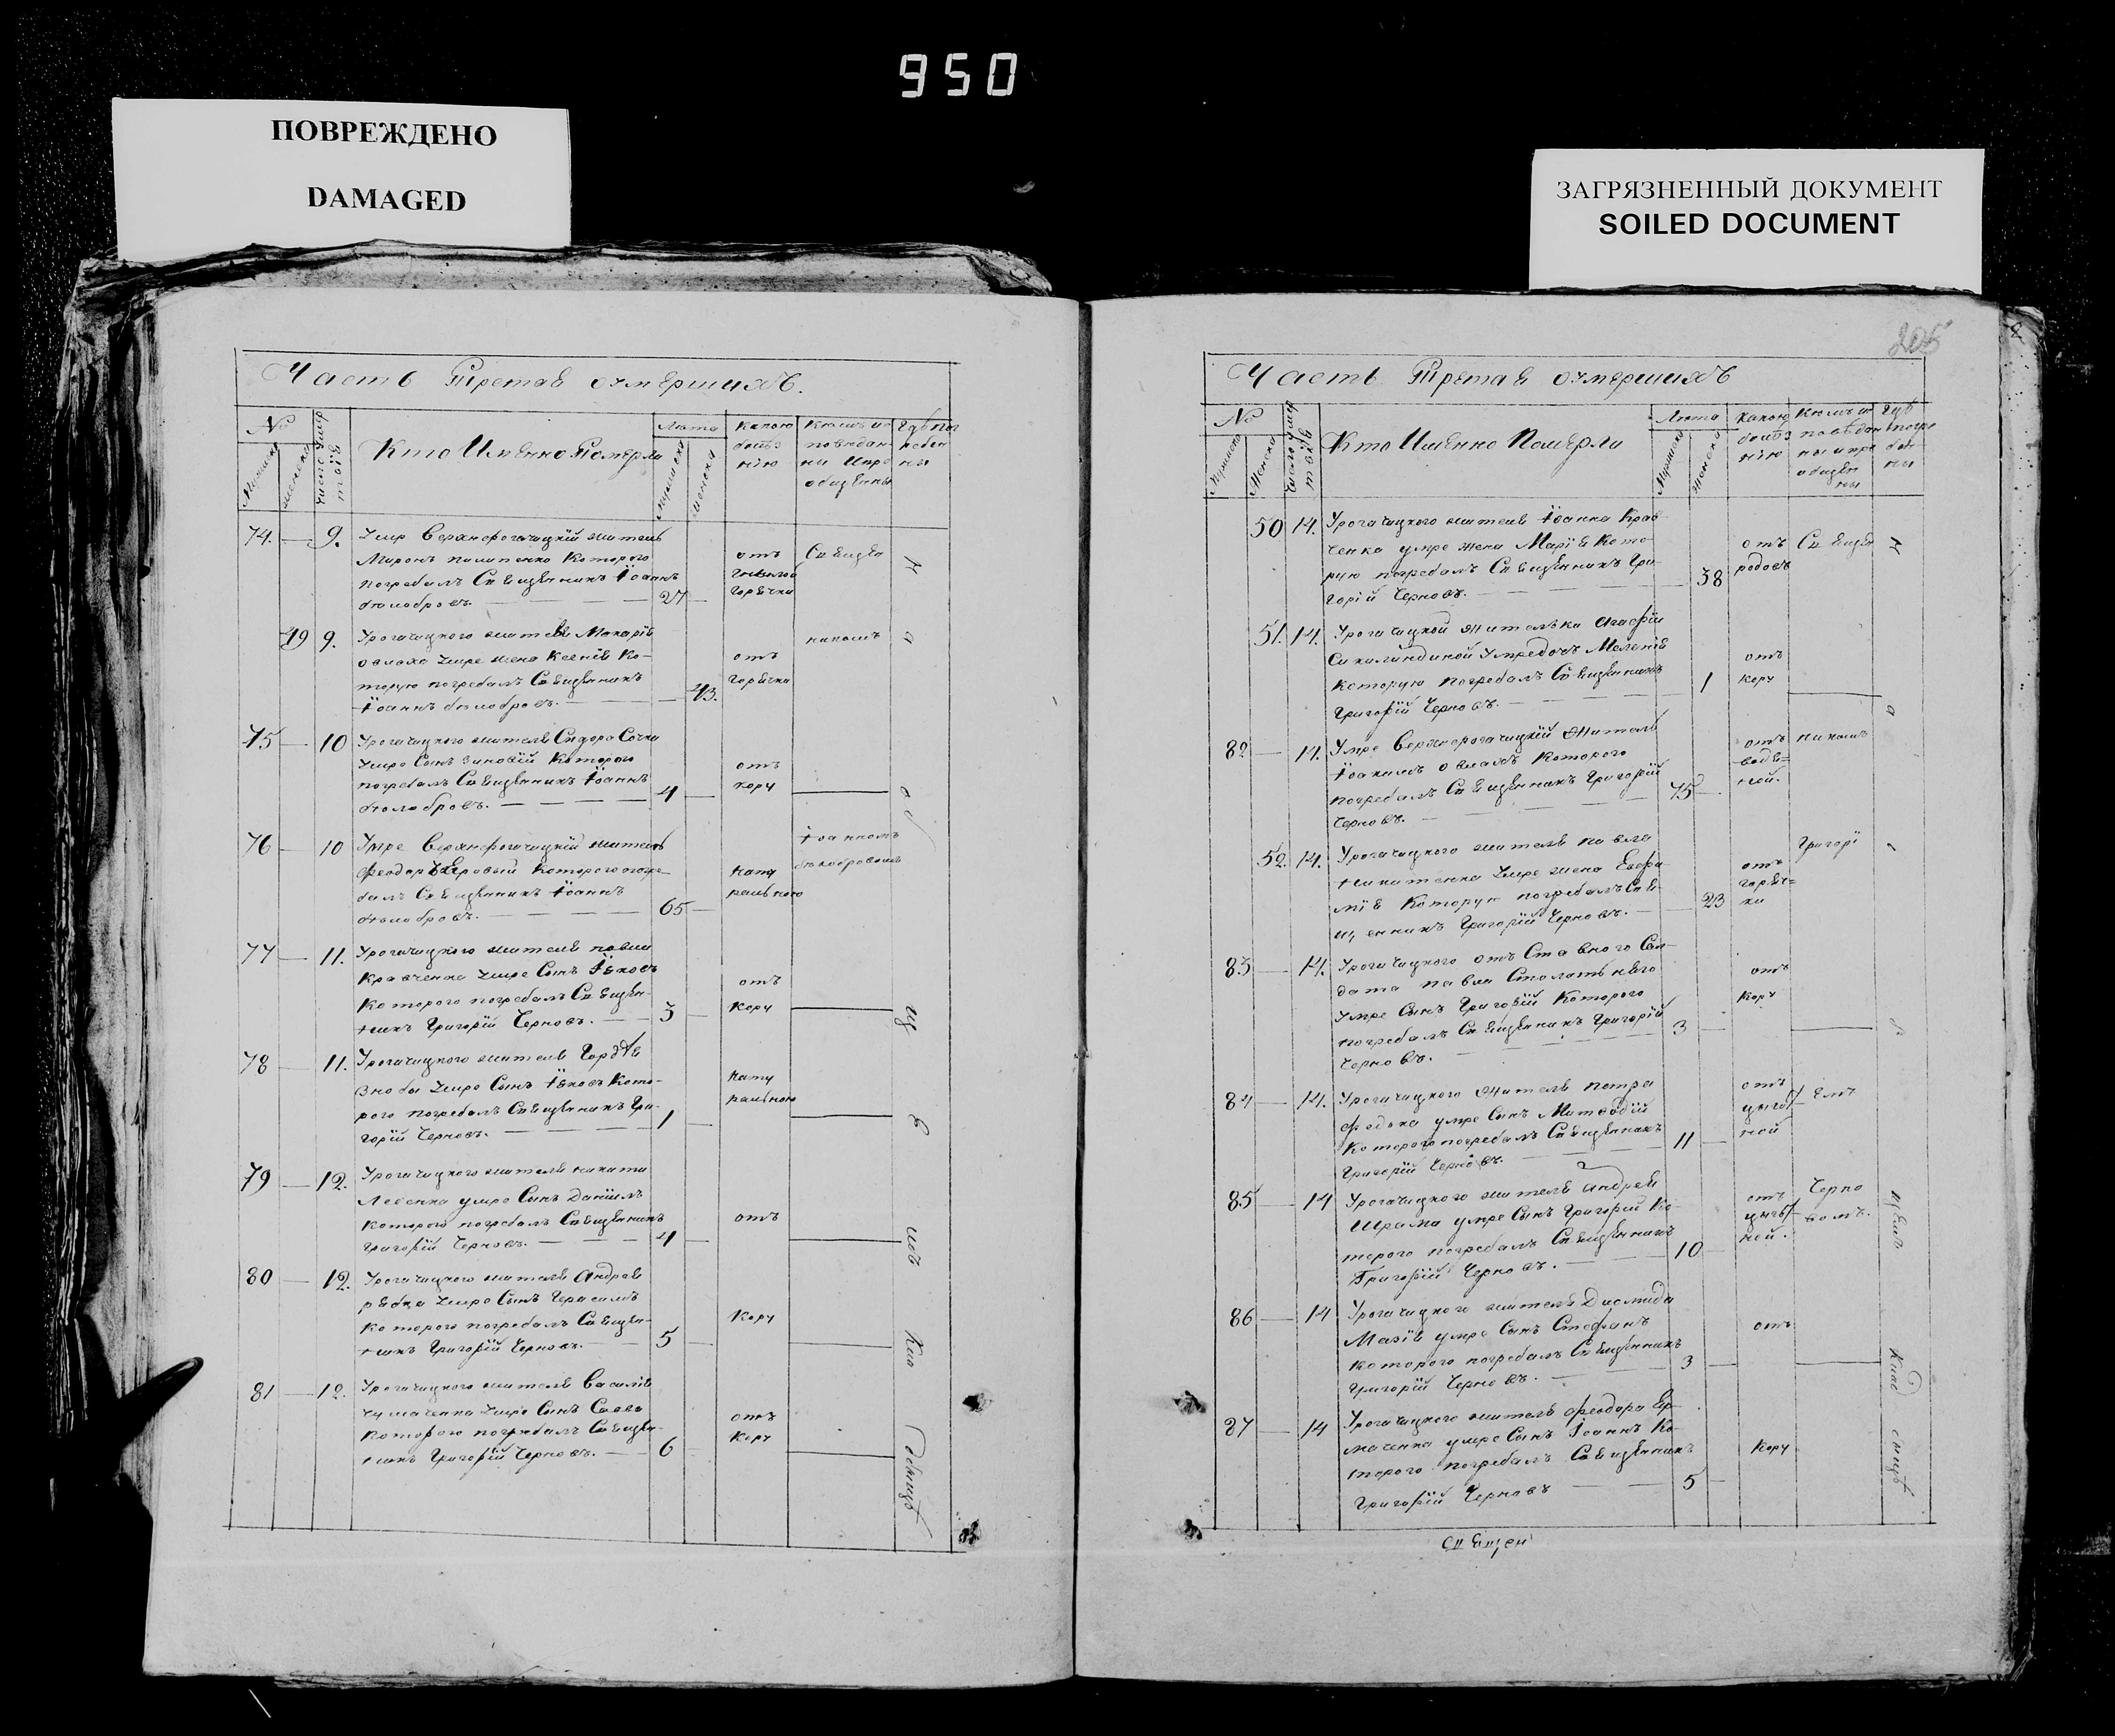 950
ПОВРЕЖДЕНО
DAMAGED
ЗАГРЯЗНЕННЫЙ ДОКУМЕНТ
SOILED DOCUMENT
Часть Третая оумершихъ.
№
Мужеска
женска
число умер
Кто Именно Померли
Лета
Мужеска
женска
Какою
болез
нію
Кемъ ис
поведан
ни и прі
общены
Где пог
ребен
ны
74. — 9. Умре Верхнерогачицкій житель
Миронъ Которого
погребалъ Священникъ Іоаннъ
белобровъ. — 27 —
отъ
гнилой
горячки
Священ
49 9. Урогачицкого жителя Макарія
умре жена Ксенія Ко-
торую погребалъ Священникъ
Іоаннъ белобровъ. — 43.
отъ
горячки
75 — 10 Урогачицкого жителя Сидора Сочки
умре Сынъ Зиновій Которого
погребалъ Священникъ Іоаннъ
белобровъ. — 4 —
отъ
кору
76 — 10 Умре Верхнерогачицкій житель
Феодоръ Которого погре-
балъ Священникъ Іоаннъ
белобровъ. — 65 —
Іоанномъ
белобровомъ
77 — 11. Урогачицкого жителя павла
Кравченка умре Сынъ Іаковъ
Которого погребалъ Священ-
никъ Григорій Черновъ. — 3 —
отъ
Кору
78 — 11. Урогачицкого жителя Гордея
Зюбы умре Сынъ Іаковъ Кото-
рого погребалъ Священникъ Гри-
горій Черновъ. — 1 —
79 — 12. Урогачицкого жителя никиты
Левенка умре Сынъ Даніилъ
Которого погребалъ Священникъ
Григорій Черновъ. — 4 —
отъ
80 — 12. Урогачицкого жителя Андрея
умре Сынъ Герасимъ
Которого погребалъ Священ-
никъ Григорій Черновъ. — 5 —
Кору
81 — 12. Урогачицкого жителя Василія
чумаченка умре Сынъ Савва
Которого погребалъ Священ-
никъ Григорій Черновъ. — 6 —
отъ
Кору
205
Часть Третая оумершихъ
№
Мужеска
Женска
число умер
Кто Именно Померли
Лета
Мужеска
женска
какою
болез
нію
Кемъ ис
поведан
ны и при
общен
ны
где
погре
бен
ны
50 14. Урогачицкого жителя Іоанна Крав
ченка умре жена Марія Кото-
рую погребалъ Священникъ Гри-
горій Черновъ. — 38
отъ
родовъ
Священ
51. 14. Урогачицкой жителька Агафіи
умре дочь Меланія
которую погребалъ Священникъ
Григорій Черновъ. — 1
отъ
кору
82 — 14. Умре Верхнерогачицкій житель
Іоакимъ Которого
погребалъ Священникъ Григорій
Черновъ. — 75 —
отъ
водя=
ной.
52. 14. Урогачицкого жителя павла
никитенка умре жена Евфи-
мія Которую погребалъ Свя-
щенникъ Григорій Черновъ. — 23
отъ
горяч=
ки
Григорі
83 — 14. Урогачицкого отъставного Сол-
дата павла
умре Сынъ Григорій Которого
погребалъ Священникъ Григорій
Черновъ. 3 —
отъ
кору
84 — 14. Урогачицкого жителя петра
федька умре Сынъ Мефодій
Которого погребалъ Священникъ
Григорій Черновъ. — 11 —
отъ
цынго
ной
емъ
85 — 14 Урогачицкого жителя андрея
Шрама умре Сынъ Григорій Ко-
торого погребалъ Священникъ
Григорій Черновъ. — 10
отъ
цынго
ной.
Черно
вомъ.
86 — 14 Урогачицкого жителя Диомида
Мазія умре Сынъ Стефанъ
Которого погребалъ Священникъ
Григорій Черновъ. — 3 —
отъ
87 — 14 Урогачицкого жителя феодора Ер-
маченка умре Сынъ Іоаннъ Ко-
торого погребалъ Священникъ
Григорій Черновъ — 5 —
Кору
Священ